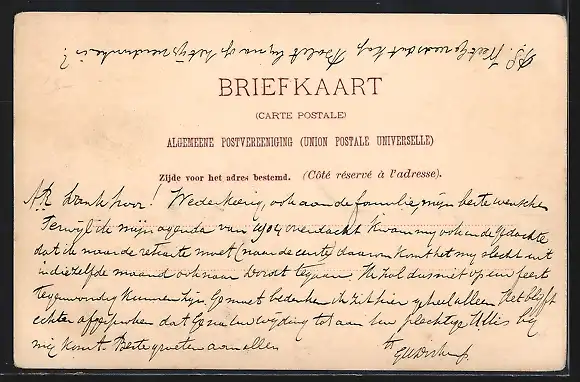 P.S. Weet ge
BRIEFKAART
(CARTE POSTALE)
ALGEMEENE POSTVEREENIGING (UNION POSTALE UNIVERSELLE)
Zijde voor het adres bestemd. (Côté réservé à l'adresse).
dank hoor! Wederkeerig, ook aan de familie, mijn beste wenschen
Terwijl ik mijn agenda van 1904 overdacht kwam mij ook in de gedachte
dat ik naar de retraite moet (naar de eerste) daarom komt het mij slecht uit
in diezelfde maand ook naar te gaan. Ik zal dus niet op uw feest
tegenwoordig kunnen zijn. Ge moet bedenken ik zit hier geheel alleen. Het blijft
echter afgesproken dat Ge na uw wijding tot aan uw plechtige H. Mis bij
mij komt. Beste groeten aan allen